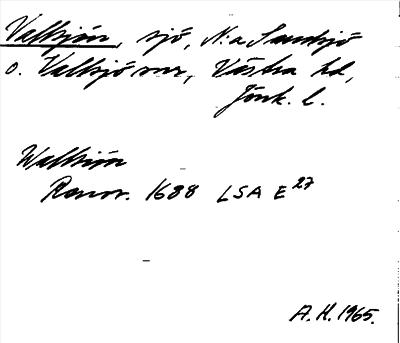 Vallsjön, sjö, N:a Sandsjö
o. Vallsjö snr, Västra hd,
Jönk. l.
Wallsiön
Rannr. 1688 LSA E 27
A. H. 1965.